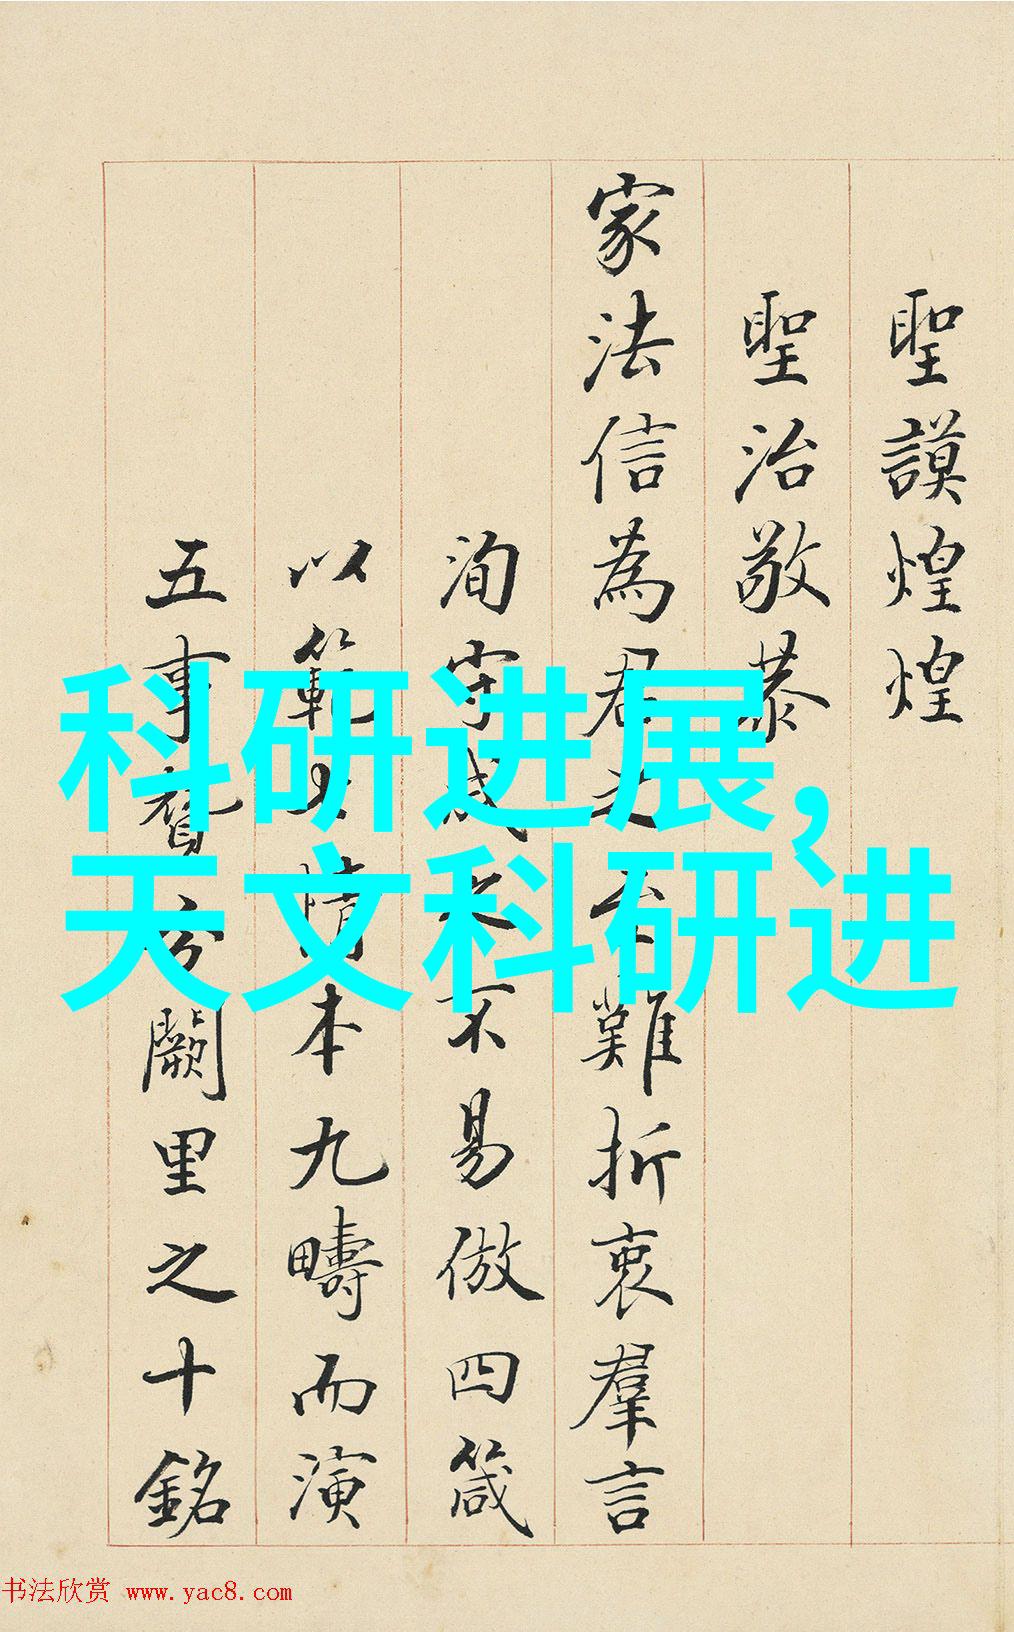 聖謨煌煌
聖治敬恭
家法信為君之難折衷羣言
洵守成之不易倣四箴
以範七情本九疇而演
五事分闕里之十銘
科研进展,
天文科研进
书法欣赏 www.yac8.com